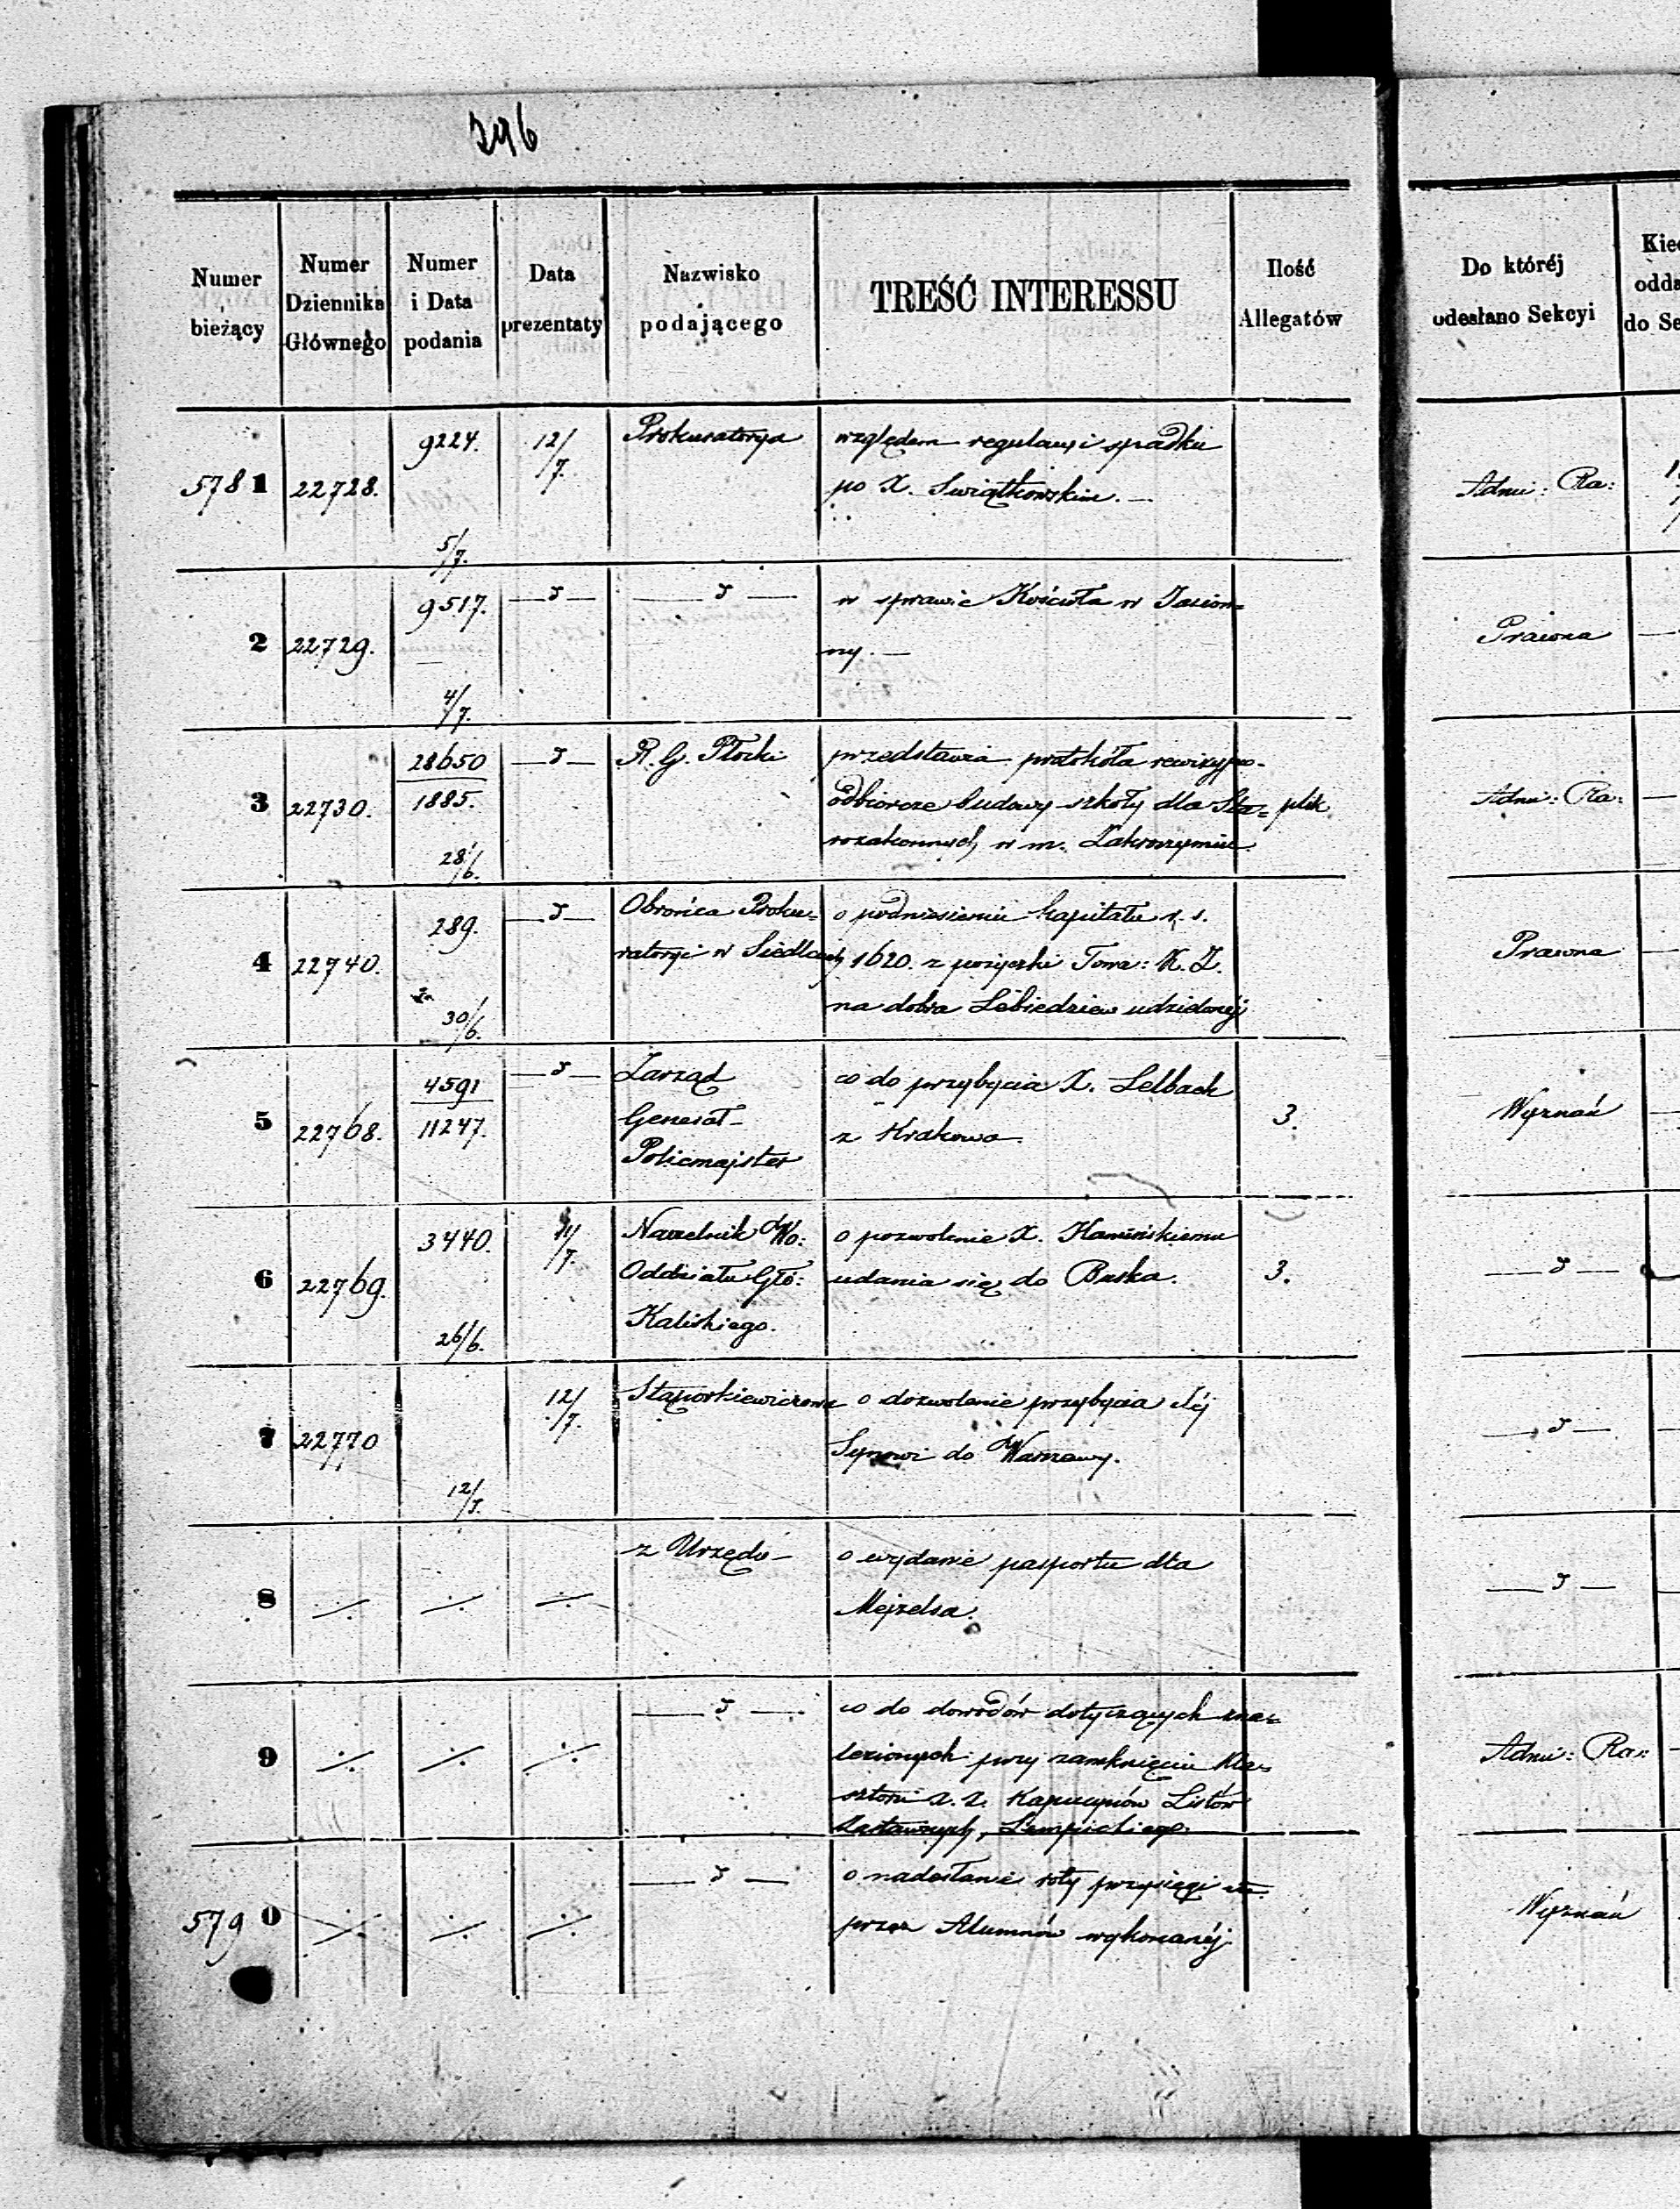 296
Numer bieżący
Numer Dziennika Głównego
Numer i Data podania
Data prezentaty
Nazwisko podającego
TREŚĆ INTERESSU
Ilość Allegatów
Do któréj odesłano Sekcyi
5781 22728. 9224. 5/7. 12/7. Prokuratorya
względem regulacyi spadku
po X. Swiątkowskim. —
Admi: Ra:
2 22729. 9517. 4/7. — d — — d —
w sprawie Kościoła w Jasion=
ny. —
Prawna
3 22730. 28650 1885. 28/6. — d — R. G. Płocki
przedstawia protokóła rewizyjno-
odbiorcze budowy szkoły dla Sta=
rozakonnych w m. Zakroczymiu.
plik
Admi: Ra:
4 22740. 289. 30/6. — d —
Obrońca Proku=
ratoryi w Siedlcach
o podniesieniu kapitału r. s.
1620. z pożyczki Towa: K. Z.
na dobra Lebiedziew udzielonéj
Prawna
5 22768. 4591 11247. — d —
Zarząd
Generał-
Policmajster
co do przybycia X. Lelbach
z Krakowa
3.
Wyznań
6 22769. 3440. 26/6. 11/7.
Naczelnik Wo:
Oddziału Głó:
Kaliskiego.
o pozwolenie X. Kamińskiemu
udania się do Buska.
3.
— d —
7 22770 12/7. 12/7.
o dozwolenie przybycia Jéj
Synowi do Warszawy.
— d —
8 z Urzędu —
o wydanie pasportu dla
Mejzelsa.
— d —
9 — d —
co do dowodów dotyczących zna=
lezionych przy zamknięciu Kla=
sztoru X. X. Kapucynów Listów
Zastawnych, Łempickiego.
Admi: Ra:
5790 — d —
o nadesłanie roty przysięgi
przez Alumnów wykonanéj.
Wyznań